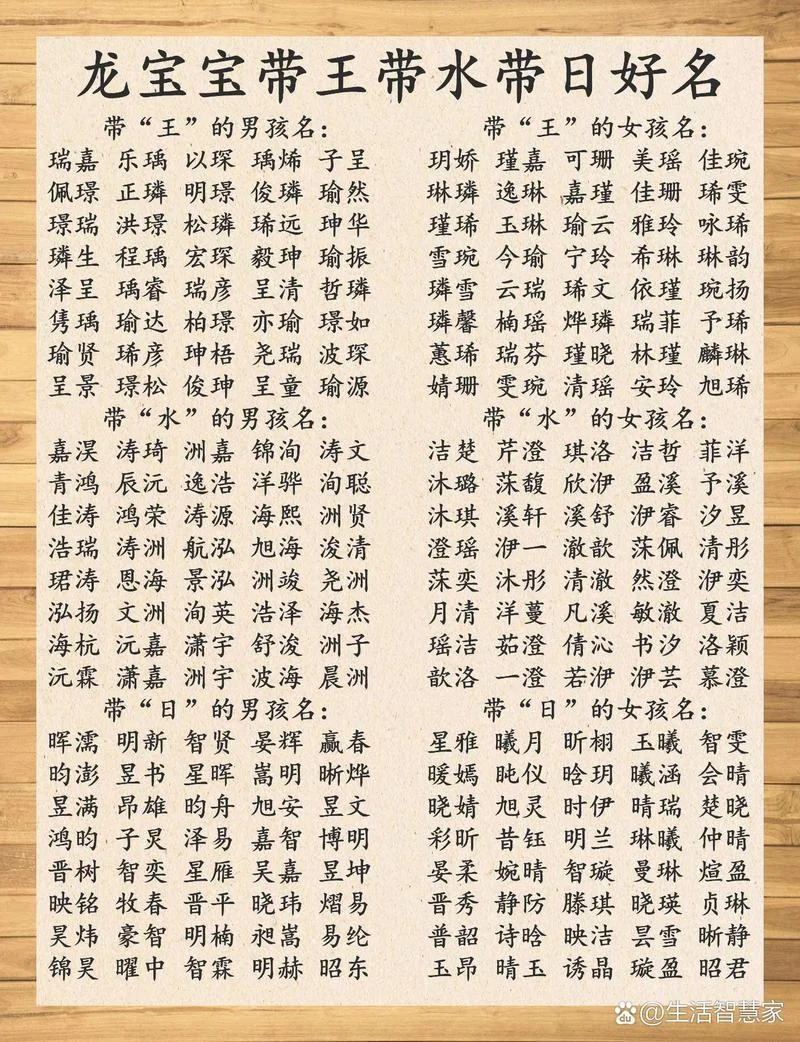 龙宝宝带王带水带日好名
带“王”的男孩名：
瑞嘉 乐瑀 以琛 瑀烯 子呈
佩璟 正璘 明璟 俊璘 瑜然
璟瑞 洪璟 松璘 琋远 珅华
璘生 程瑀 宏琛 毅珅 瑜振
泽呈 瑀睿 瑞彦 呈清 哲璘
隽瑀 瑜达 柏璟 亦瑜 璟如
瑜贤 琋彦 珅梧 尧瑞 波琛
呈景 璟松 俊珅 呈童 瑜源
带“王”的女孩名：
玥娇 瑾嘉 可珊 美瑶 佳琬
琳璘 逸琳 嘉瑾 佳珊 琋雯
瑾琋 玉琳 瑜云 雅玲 咏琋
雪琬 今瑜 宁玲 希琳 琳韵
璘雪 云瑞 琋文 依瑾 琬扬
璘馨 楠瑶 烨璘 瑞菲 予琋
蕙琋 瑞芬 瑾晓 林瑾 麟琳
婧珊 雯琬 清瑶 安玲 旭琋
带“水”的男孩名：
嘉淏 涛琦 洲嘉 锦洵 涛文
青鸿 辰沅 逸浩 洋骅 洵聪
佳涛 鸿荣 涛源 海熙 洲贤
浩瑞 涛洲 航泓 旭海 浚清
珺涛 恩海 景泓 洲竣 尧洲
泓扬 文洲 洵英 浩泽 海杰
海杭 沅嘉 潇宇 舒浚 洲子
沅霖 潇嘉 洲宇 波海 晨洲
带“水”的女孩名：
洁楚 芹澄 琪洛 洁哲 菲洋
沐璐 莯馥 欣洢 盈溪 予溪
沐琪 溪轩 溪舒 洢睿 汐昱
澄瑶 洢一 澈歆 莯佩 清彤
莯奕 沐彤 清澈 然澄 洢奕
月清 洋蔓 凡溪 敏澈 夏洁
瑶洁 茹澄 倩沁 书汐 洛颖
歆洛 一澄 若洢 洢芸 慕澄
带“日”的男孩名：
晖濡 明新 智贤 晏辉 赢春
昀澎 昱书 星晖 嵩明 晰烨
昱满 昂雄 昀舟 旭安 昱文
鸿昀 子炅 泽易 嘉智 博明
晋树 智奕 星雁 吴嘉 昱坤
映铭 牧春 晋平 晓玮 熠易
昊炜 豪智 明楠 昶嵩 易纶
锦昊 曜中 智霖 明赫 昭东
带“日”的女孩名：
星雅 曦月 昕栩 玉曦 智雯
暖嫣 旽仪 晗玥 曦涵 会晴
晓婧 旭灵 时伊 晴瑞 楚晓
彩昕 昔钰 明兰 琳曦 仲晴
晏柔 婉晴 智璇 曼琳 煊盈
晋秀 静防 滕琪 晓瑛 贞琳
普韶 诗晗 映洁 昙雪 晰静
玉昂 晴玉 诱晶 璇盈 昭君
du @生活智慧家